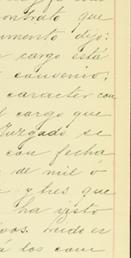 ontrato que
umento dijo:
cargo está
convenio;
caracter con
l cargo que
Juzgado se
con fecha
de mil o
y tres que
ha visto
los com